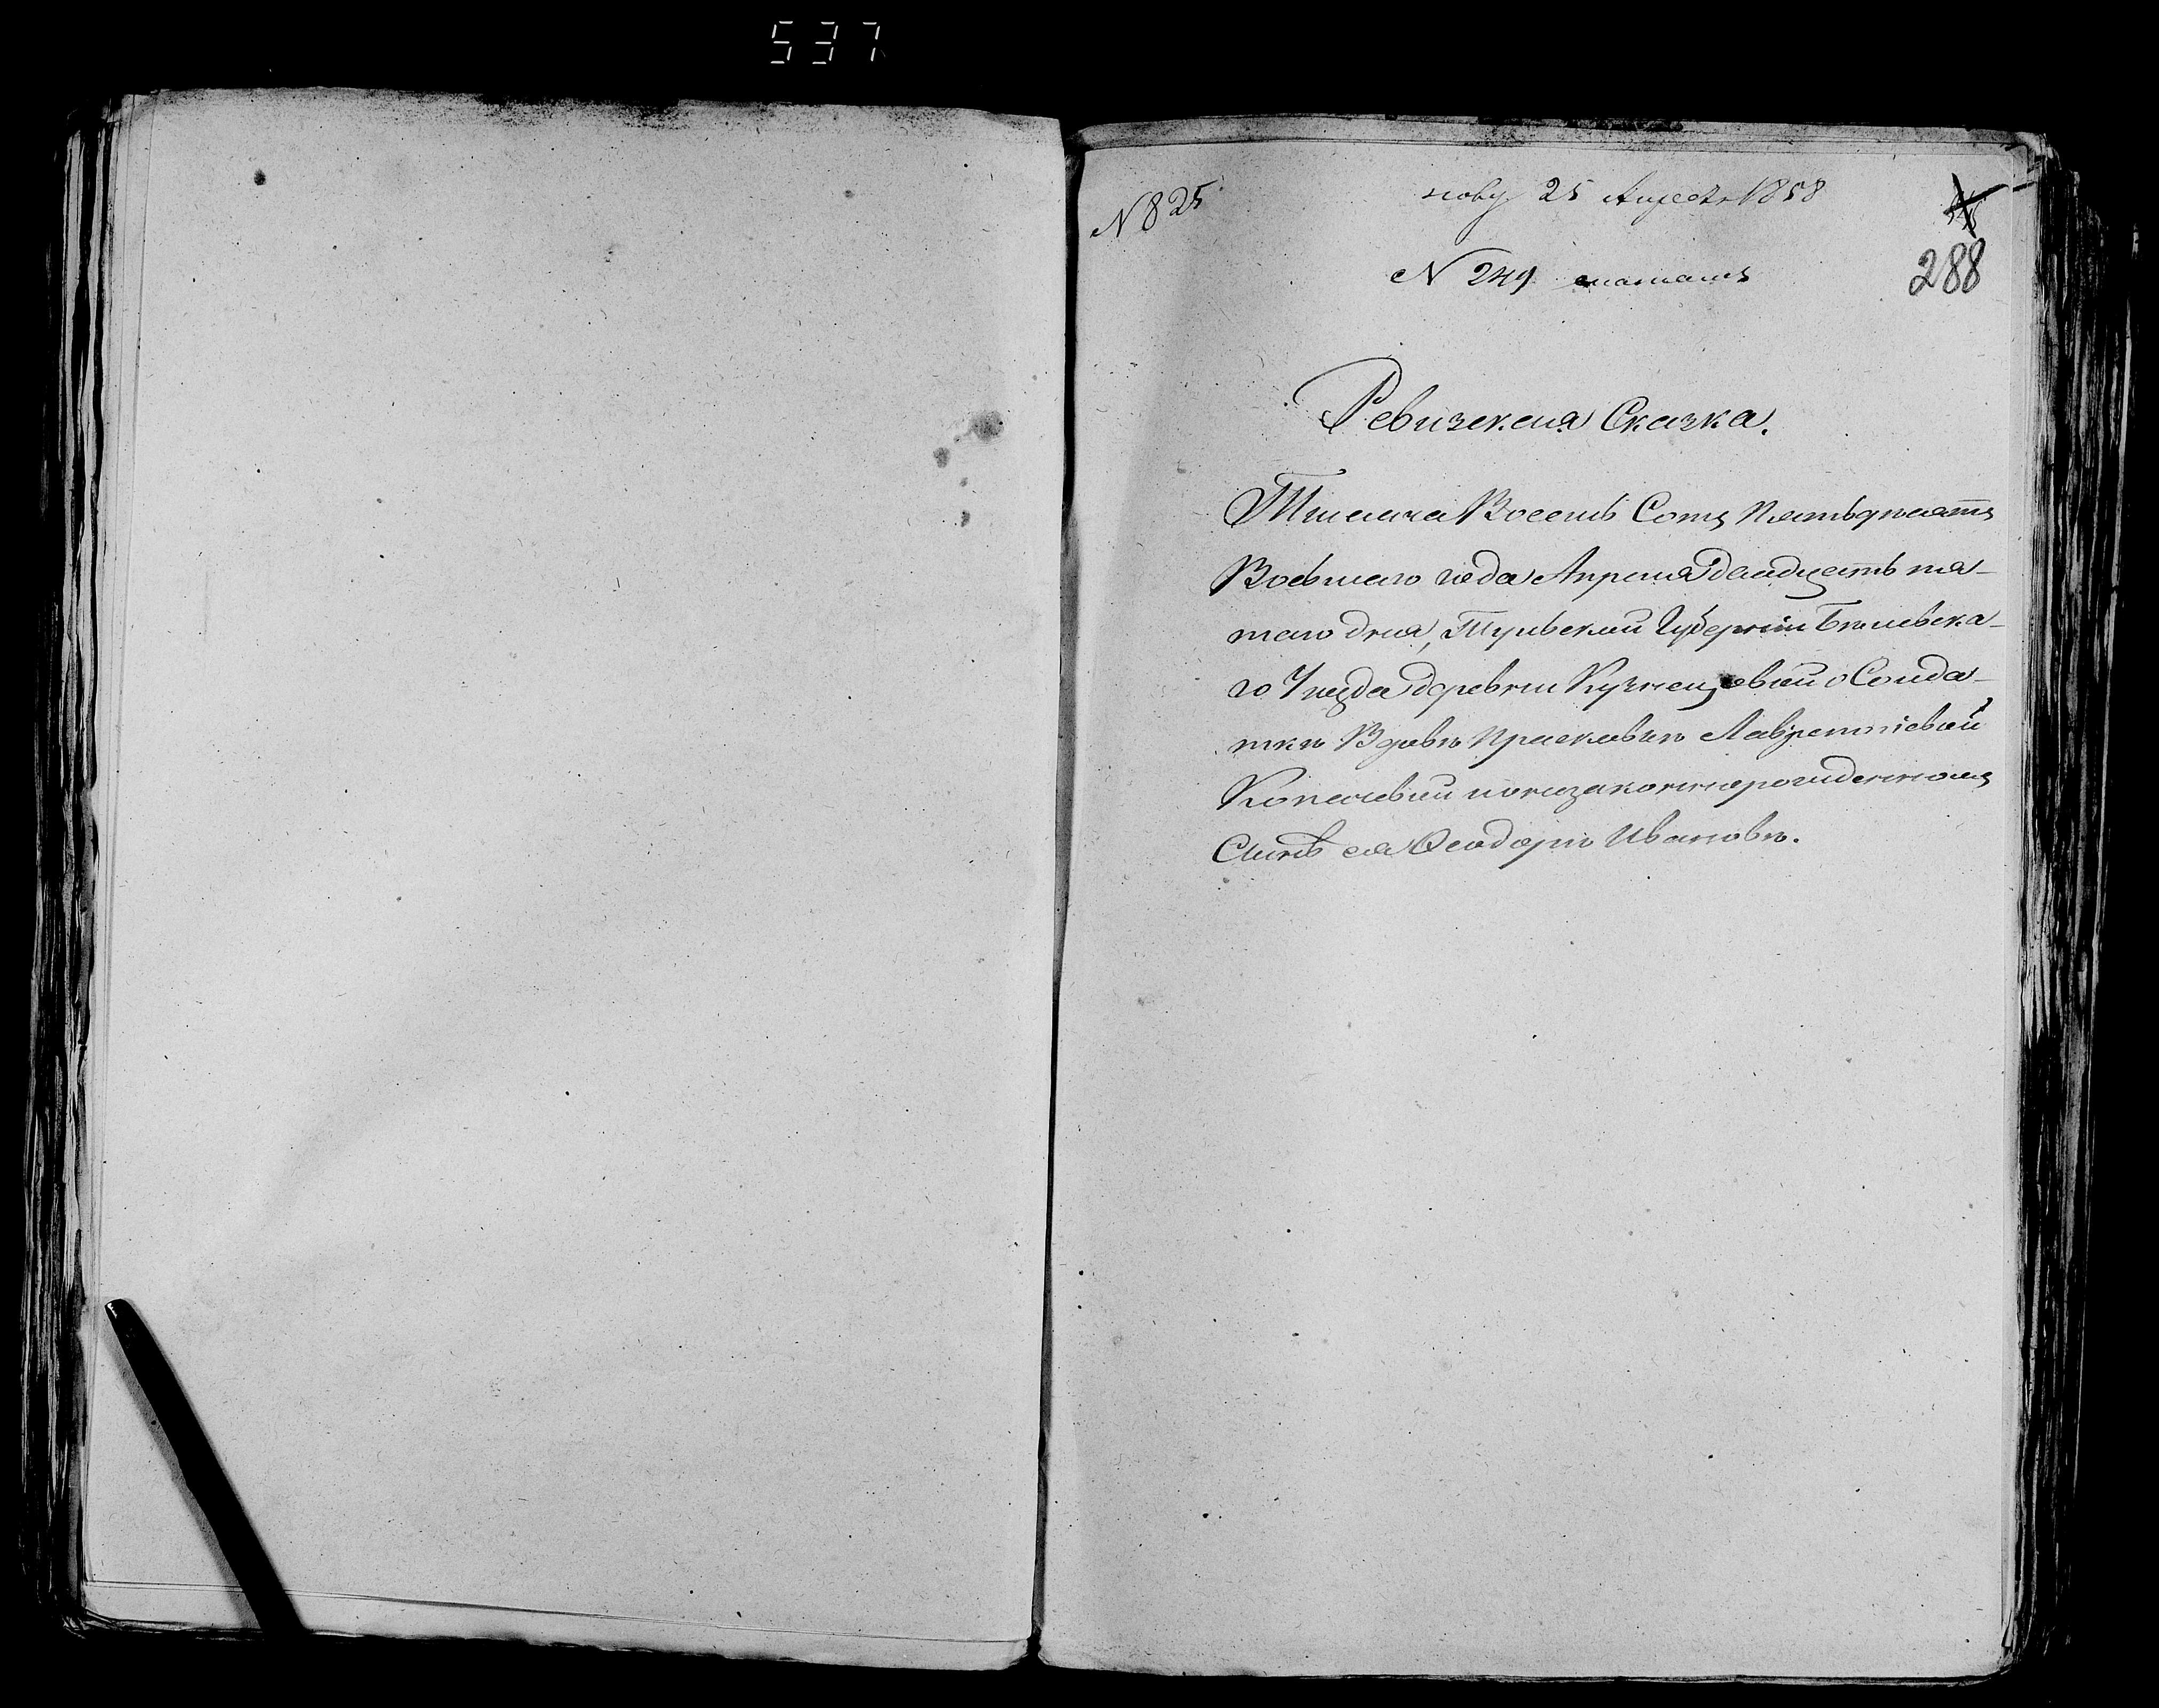 537
N 825
25 Апреля 1858
N 249
288
Ревизская Сказка.
Тысяча Восемь Сотъ Пятьдесятъ
Восьмаго года Апреля двадцать пя-
таго дня, Тульской Губерніи Бѣлевска-
го Уѣзда деревни Кузнецовой о Солда-
ткѣ Вдовѣ Прасковьѣ Лаврентіевой
и незаконнорожденномъ
Сынѣ ея Ѳеодорѣ Ивановѣ.